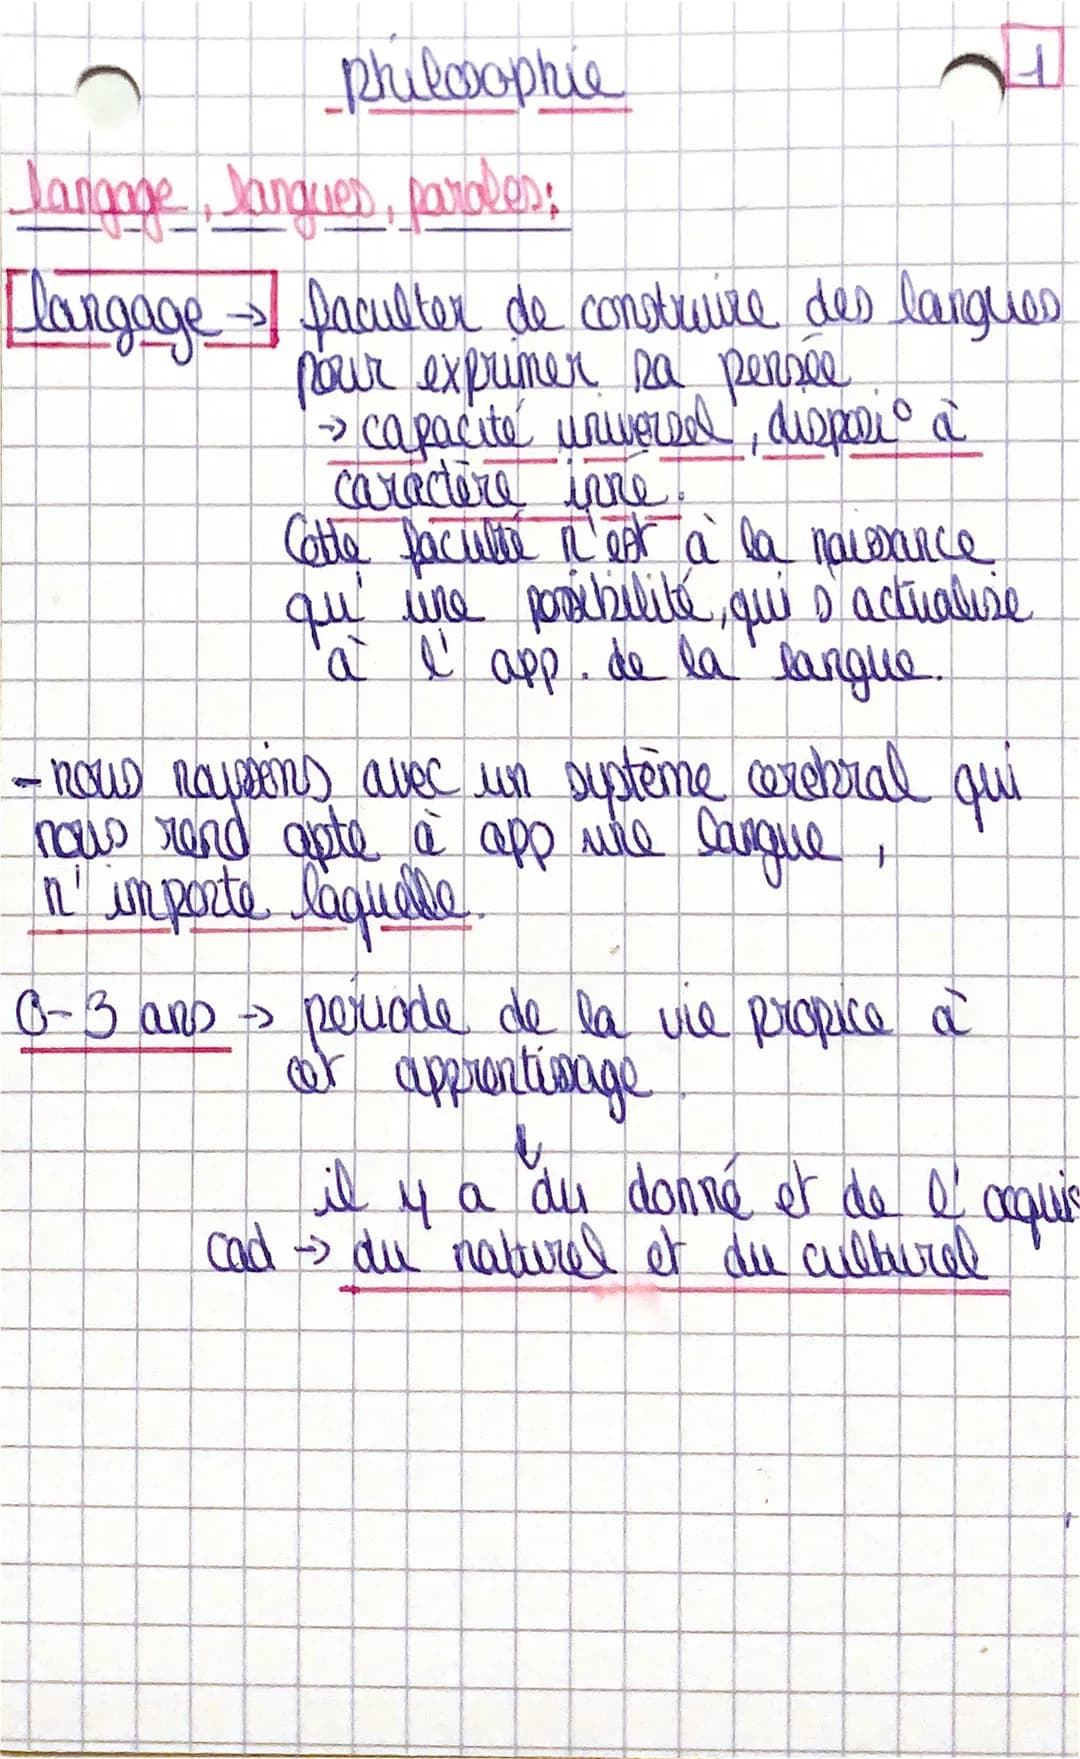 philosophie
1
langage, langues, paroles:
langage → faculter de construire des langues
pour exprimer sa pensée
→ capacité universel, disposi° à
caractère inné.
Cette faculté n'est à la naissance
qu'une possibilité, qui s'actualise
à l'app. de la langue.
- nous naissons avec un système cerebral qui
nous rend apte à app une langue,
n'importe laquelle.
0-3 ans → période de la vie propice à
cet apprentissage.
↓
il y a du donné et de l'acquis
cad → du naturel et du culturel